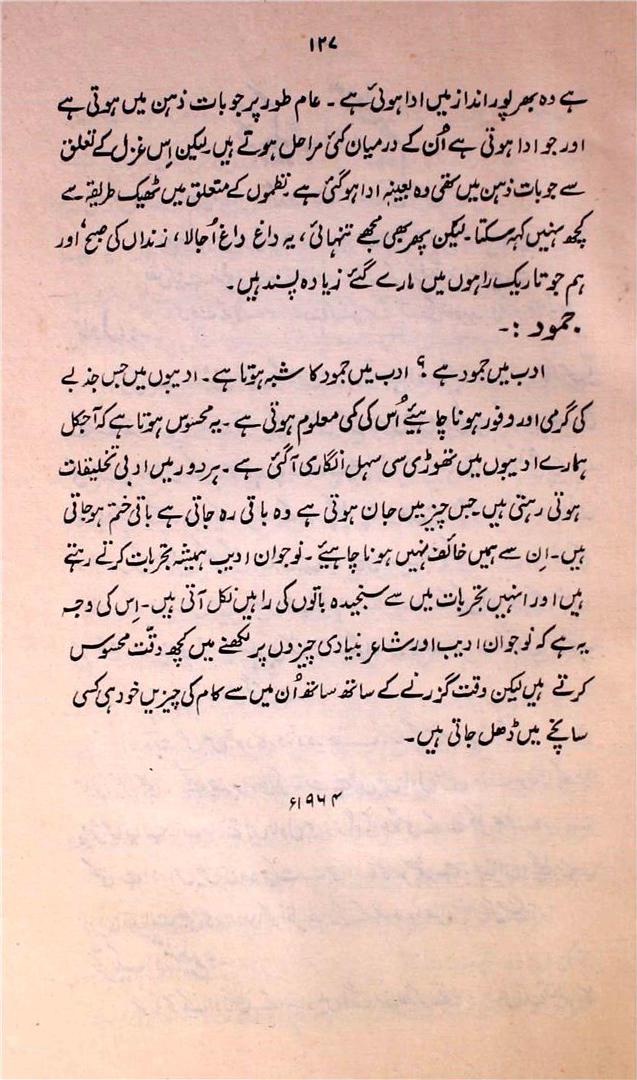 ۱۲۷
ہے وہ بھرپور انداز میں ادا ہوئی ہے ۔ عام طور پر جو بات ذہن میں ہوتی ہے
اور جو ادا ہوتی ہے اُن کے درمیان کئی مراحل ہوتے ہیں لیکن اِس غزل کے تعلق
سے جو بات ذہن میں تھی وہ بعینہ ادا ہو گئی ہے ۔ نظموں کے متعلق میں ٹھیک طریقہ سے
کچھ نہیں کہہ سکتا ۔ لیکن پھر بھی مجھے تنہائی ، یہ داغ داغ اُجالا ، زنداں کی صبح ، اور
ہم جو تاریک راہوں میں مارے گئے زیادہ پسند ہیں ۔
جمود :-
ادب میں جمود ہے ؟ ادب میں جمود کا شبہ ہوتا ہے ۔ ادیبوں میں جس جذبے
کی گرمی اور وفور ہونا چاہیئے اُس کی کمی معلوم ہوتی ہے ۔ یہ محسوس ہوتا ہے کہ آجکل
ہمارے ادیبوں میں تھوڑی سی سہل انگاری آ گئی ہے ۔ ہر دور میں ادبی تخلیقات
ہوتی رہتی ہیں جس چیز میں جان ہوتی ہے وہ باقی رہ جاتی ہے باقی ختم ہو جاتی
ہیں ۔ اِن سے ہمیں خائف نہیں ہونا چاہیئے ۔ نوجوان ادیب ہمیشہ تجربات کرتے رہتے
ہیں اور انہیں تجربات میں سے سنجیدہ باتوں کی راہیں نکل آتی ہیں ۔ اِس کی وجہ
یہ ہے کہ نوجوان ادیب اور شاعر بنیادی چیزوں پر لکھنے میں کچھ دقّت محسوس
کرتے ہیں لیکن وقت گزرنے کے ساتھ ساتھ اُن میں سے کام کی چیزیں خود ہی کسی
سانچے میں ڈھل جاتی ہیں ۔
۱۹۶۴ء